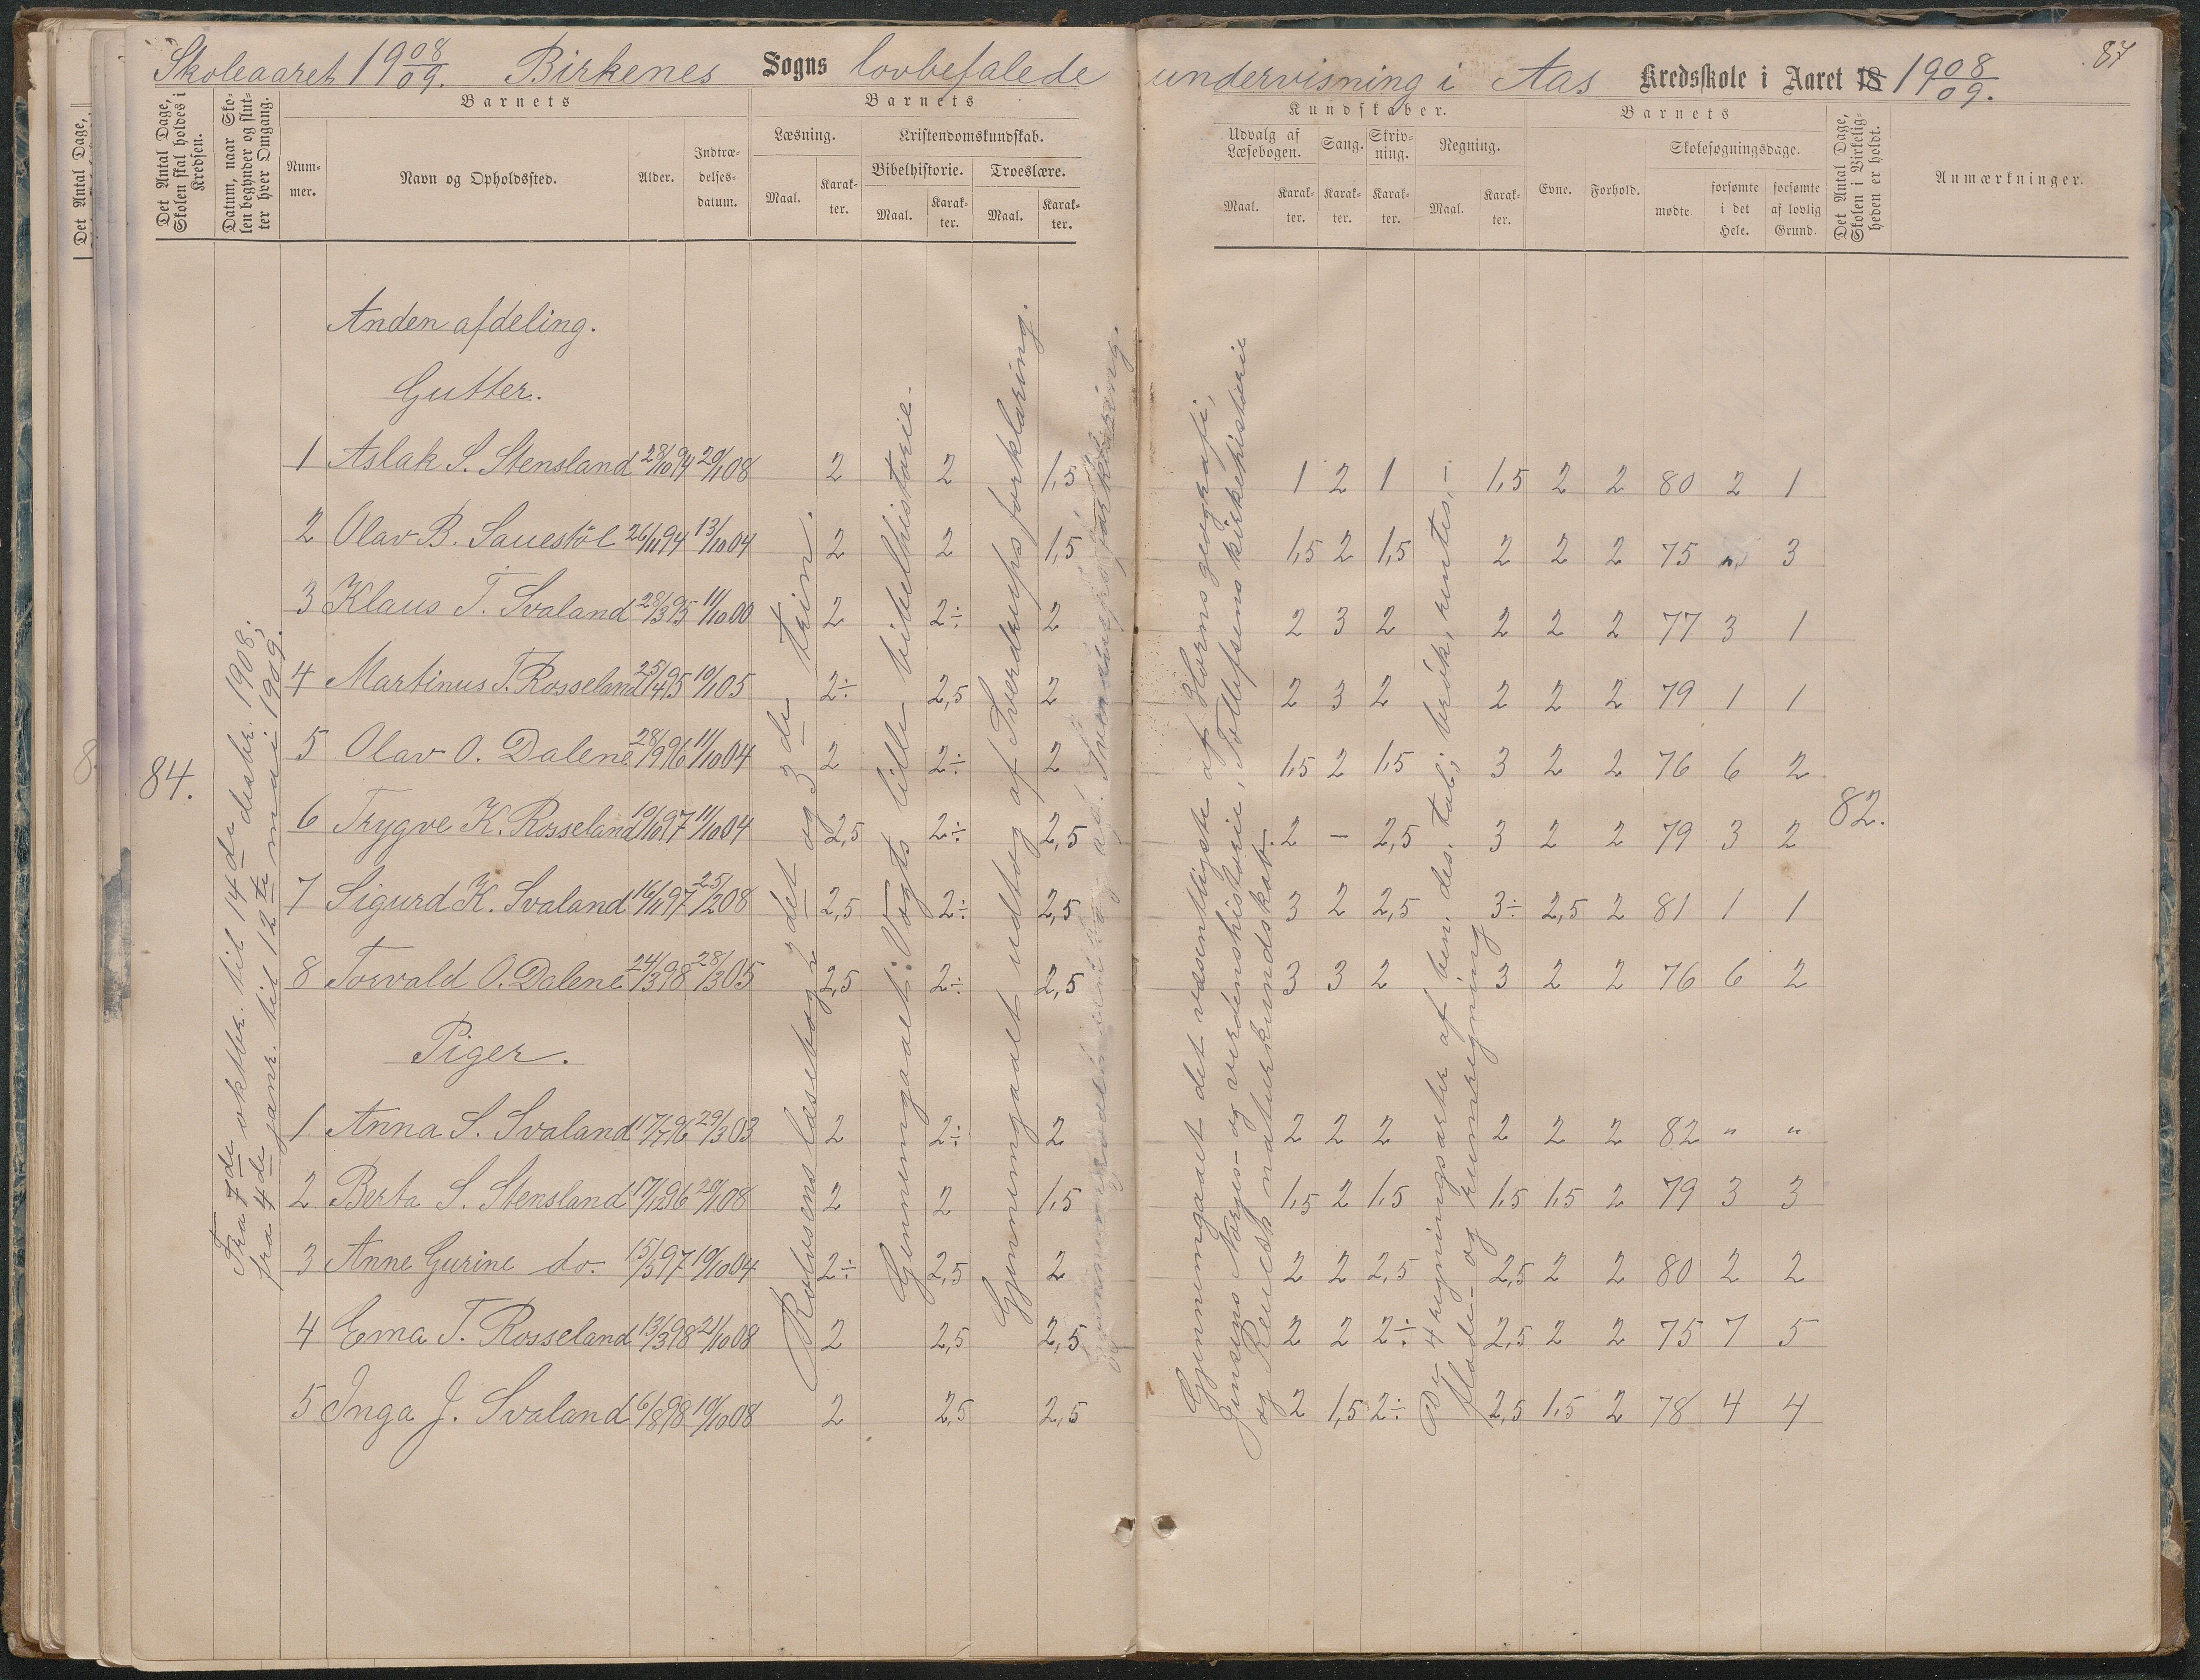 Skoleaaret 1908/09. Birkenes Sogns lovbefalede undervisning i Aas Kredsskole i Aaret 18 1908/09.
87
Det Antal Dage, Skolen skal holdes i Kredsen.
Datum, naar Skolen begynder og slutter hver Omgang.
Barnets
Nummer.
Navn og Opholdssted.
Alder.
Indtrædelsesdatum.
Barnets
Læsning.
Maal.
Karakter.
Kristendomskundskab.
Bibelhistorie.
Maal.
Karakter.
Troeslære.
Maal.
Karakter.
Kundskaber.
Udvalg af Læsebogen.
Maal.
Karakter.
Sang.
Karakter.
Skrivning.
Karakter.
Regning.
Maal.
Karakter.
Barnets
Evne.
Forhold.
Skolesøgningsdage.
mødte
forsømte i det Hele.
forsømte af lovlig Grund.
Det Antal Dage, Skolen i Virkeligheden er holdt.
Anmærkninger.
Det Antal Dage,
Anden afdeling.
Gutter.
1 Aslak S. Stensland 28/10 94 20/1 08 2 2 1,5 1 2 1 1,5 2 2 80 2 1
2 Olav B. Sauestöl 26/11 94 13/10 04 2 2 1,5 1,5 2 1,5 2 2 2 75 3
3 Klaus T. Svaland 28/3 95 11/10 00 2 2÷ 2 2 3 2 2 2 2 77 3 1
4 Martinus T. Rosseland 25/4 95 10/1 05 2÷ 2,5 2 2 3 2 2 2 2 79 1 1
5 Olav O. Dalene 28/9 96 11/10 04 2 2÷ 2 1,5 2 1,5 3 2 2 76 6 2
6 Trygve K. Rosseland 19/10 97 11/10 04 2,5 2÷ 2,5 2 – 2,5 3 2 2 79 3 2
7 Sigurd K. Svaland 16/11 97 25/2 08 2,5 2÷ 2,5 3 2 2,5 3÷ 2,5 2 81 1 1
8 Torvald O. Dalene 24/3 98 28/3 05 2,5 2÷ 2,5 3 3 2 3 2 2 76 6 2
Piger.
1 Anna S. Svaland 17/7 96 29/3 03 2 2÷ 2 2 2 2 2 2 2 82 " "
2 Berta S. Stensland 17/12 96 20/1 08 2 2 1,5 1,5 2 1,5 1,5 1,5 2 79 3 3
3 Anne Gurine do. 15/5 97 10/10 04 2÷ 2,5 2 2 2 2,5 2,5 2 2 80 2 2
4 Ema T. Rosseland 13/3 98 21/10 08 2 2,5 2,5 2 2 2÷ 2,5 2 2 75 7 5
5 Inga J. Svaland 6/8 98 19/10 08 2 2,5 2,5 2 1,5 2÷ 2,5 1,5 2 78 4 4
84.
Fra 7de oktbr. til 14de desbr. 1908;
fra 4de janr. til 12te mai 1909.
Rolvsens læsebog 2det og 3de trin.
Gjennemgaaet: Vogts lille bibelhistorie.
Gjennemgaaet udtog af Sverdrups forklaring.
Gjennemgaaet det væsentligste af Horns geografi,
Jensens Norges- og verdenshistorie, Tollefsens kirkehistorie
og Reusch naturkundskab.
De 4 regningsarter af ben. des. tal; brök, rentes,-
flade- og rumregning
82.